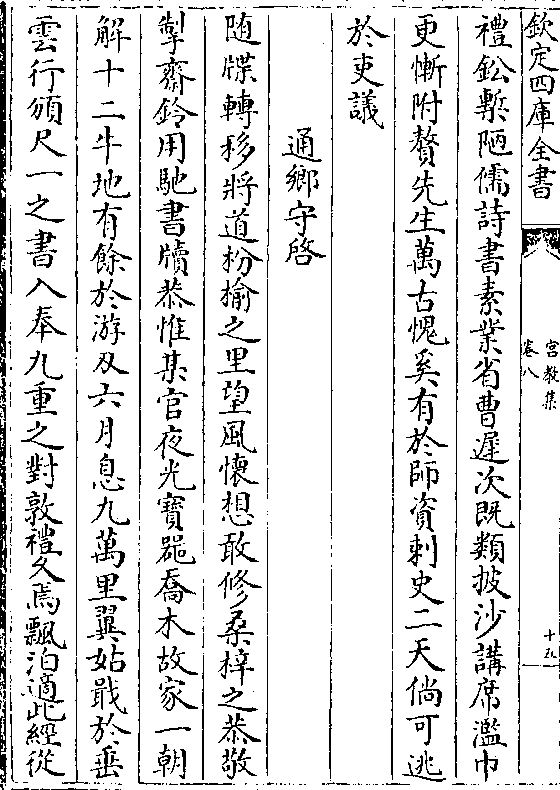 欽定四庫全書
宮教集
卷八
十五
禮鈆槧陋儒詩書素業省曹遲次既類披沙講席濫巾
更慚附贅先生萬古愧奚有於師資刺史二天倘可逃
於吏議
通鄉守啓
随牒轉移將道枌榆之里望風懐想敢修桑梓之恭敬
掣齋鈴用馳書牘恭惟某官夜光寶器喬木故家一朝
解十二牛地有餘於游刃六月息九萬里翼姑戢於垂
雲行頒尺一之書入奉九重之對敦禮久焉飄泊適此經從